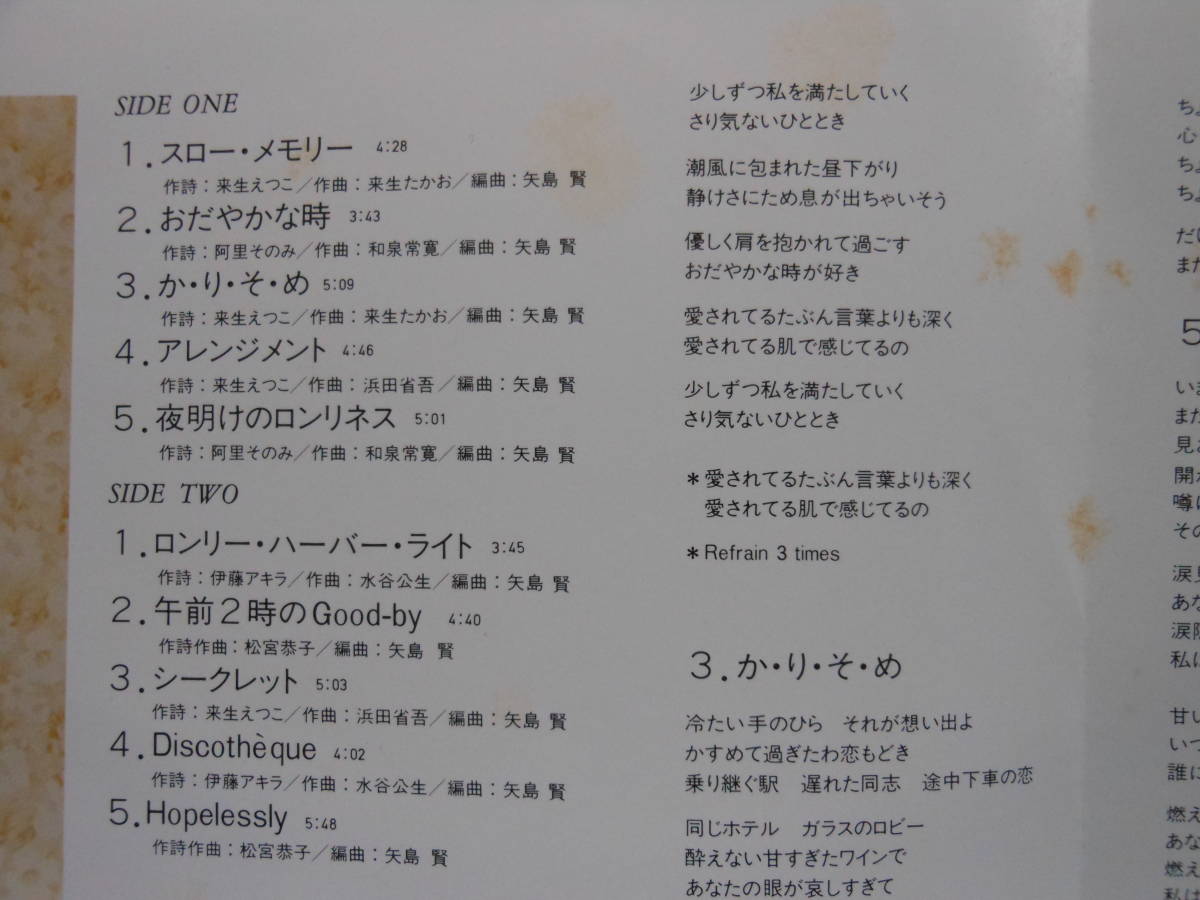 SIDE ONE
1.スロー・メモリー 4:28
作詩:来生えつこ/作曲:来生たかお/編曲:矢島 賢
2.おだやかな時 3:43
作詩:阿里そのみ/作曲:和泉常寛/編曲:矢島 賢
3.か・り・そ・め 5:09
作詩:来生えつこ/作曲:来生たかお/編曲:矢島 賢
4.アレンジメント 4:46
作詩:来生えつこ/作曲:浜田省吾/編曲:矢島 賢
5.夜明けのロンリネス 5:01
作詩:阿里そのみ/作曲:和泉常寛/編曲:矢島 賢
SIDE TWO
1.ロンリー・ハーバー・ライト 3:45
作詩:伊藤アキラ/作曲:水谷公生/編曲:矢島 賢
2.午前2時のGood-by 4:40
作詩作曲:松宮恭子/編曲:矢島 賢
3.シークレット 5:03
作詩:来生えつこ/作曲:浜田省吾/編曲:矢島 賢
4.Discothèque 4:02
作詩:伊藤アキラ/作曲:水谷公生/編曲:矢島 賢
5.Hopelessly 5:48
作詩作曲:松宮恭子/編曲:矢島 賢
少しずつ私を満たしていく
さり気ないひととき
潮風に包まれた昼下がり
静けさにため息が出ちゃいそう
優しく肩を抱かれて過ごす
おだやかな時が好き
愛されてるたぶん言葉よりも深く
愛されてる肌で感じてるの
少しずつ私を満たしていく
さり気ないひととき
*愛されてるたぶん言葉よりも深く
愛されてる肌で感じてるの
*Refrain 3 times
3.か・り・そ・め
冷たい手のひら それが想い出よ
かすめて過ぎたわ恋もどき
乗り継ぐ駅 遅れた同志 途中下車の恋
同じホテル ガラスのロビー
酔えない甘すぎたワインで
あなたの眼が哀しすぎて
心
ち
ち
だ
ま
5
い
また
見
開
噂
その
涙
あな
涙
私
甘い
いつ
誰に
燃え
あな
燃え
私